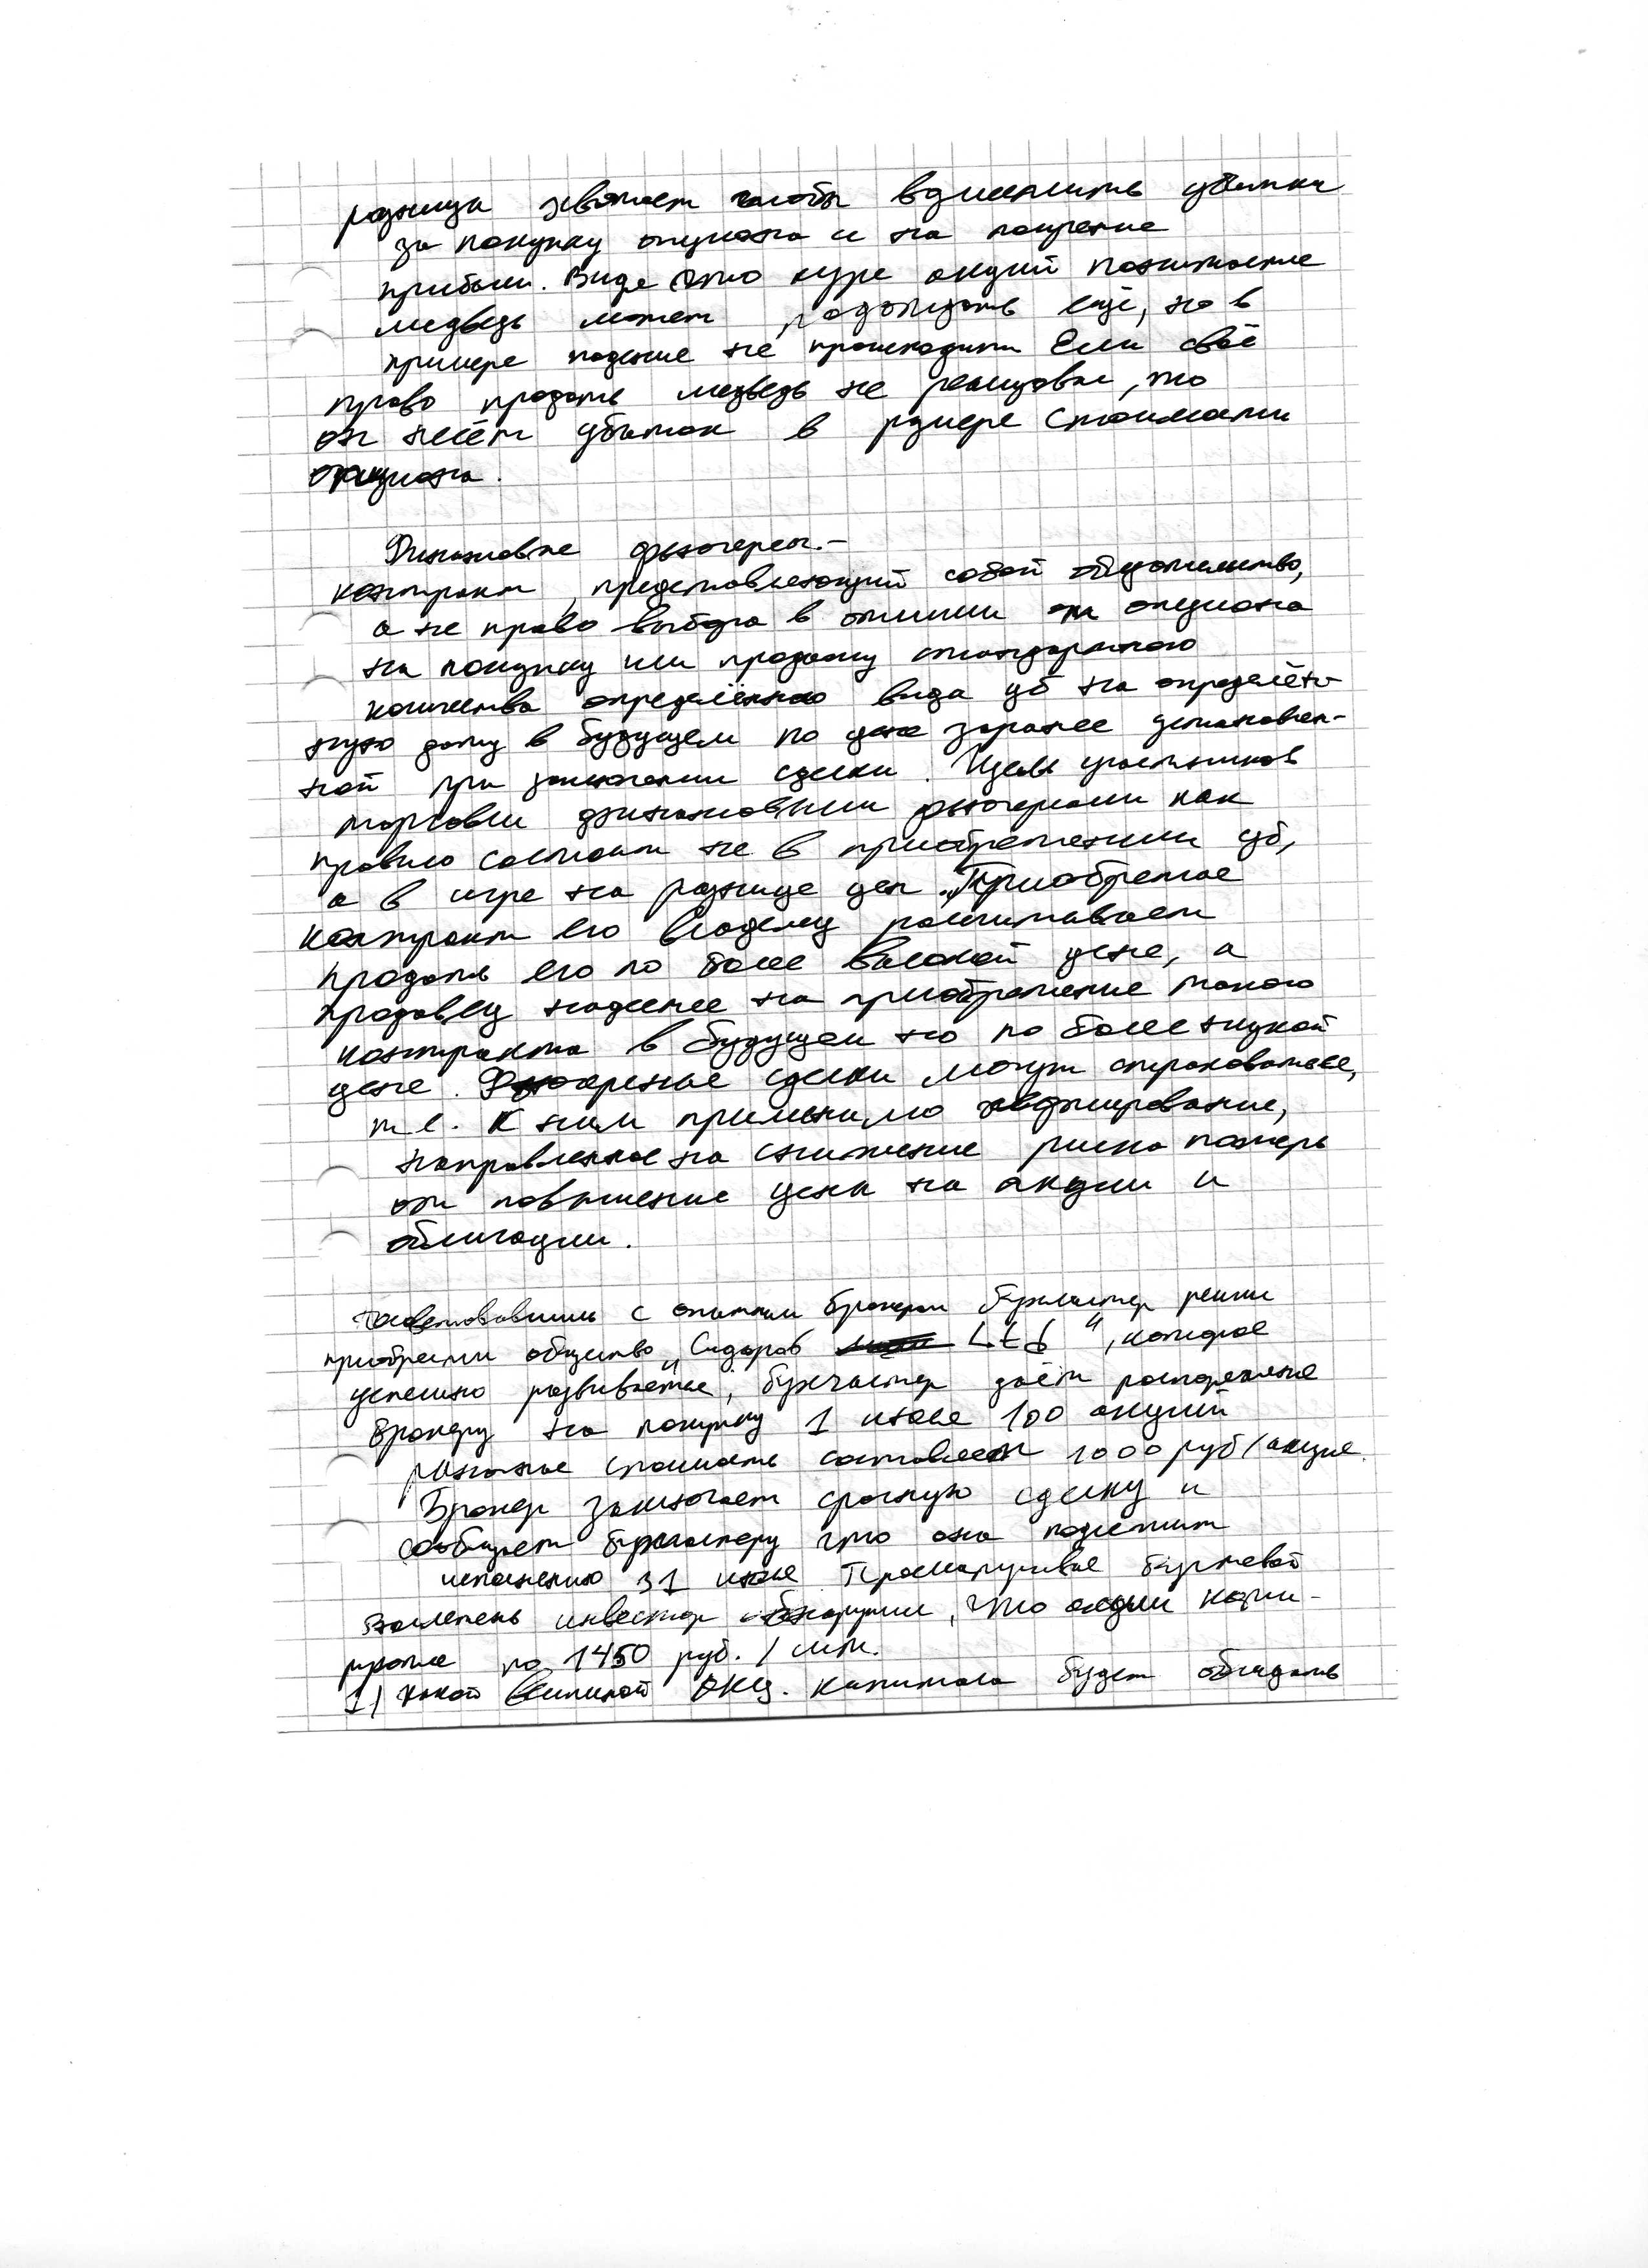 разница хватает чтобы возместить убытки
за покупку опциона и на получение
прибыли. Видя что курс акций понижается
медведь может подождать ещё, но в
примере падение не происходит Если своё
право продать медведь не реализовал, то
он несёт убыток в размере стоимости
опциона.
Финансовые фьючерсы.-
контракт, представляющий собой обязательство,
а не право выбора в отличии от опциона
на покупку или продажу стандартного
количества определённого вида цб на определён-
ную дату в будущем по цене заранее установлен-
ной при заключении сделки. Цель участников
торговли финансовыми фьючерсами как
правило состоит не в приобретении цб,
а в игре на разнице цен. Приобретая
контракт его владелец рассчитывает
продать его по более высокой цене, а
продавец надеется на приобретение такого
контракта в будущем но по более низкой
цене. Фьючерсные сделки могут страховаться,
т е. К ним применимо хеджирование,
направленное на снижение риска потерь
от повышение цены на акции и
облигации.
посоветовавшись с опытным брокером бухгалтер решил
приобрести общество "Сидоров Ltd", которое
успешно развивается, бухгалтер даёт распоряжение
брокеру на покупку 1 июля 100 акций
рыночная стоимость составляет 1000 руб/акция.
Брокер заключает срочную сделку и
сообщает бухгалтеру что она подлежит
исполнению 31 июля Просматривая биржевой
бюллетень инвестор обнаружил, что акции коти-
ровались по 1450 руб. / шт.
1) какой величиной акц. капитала будет обладать